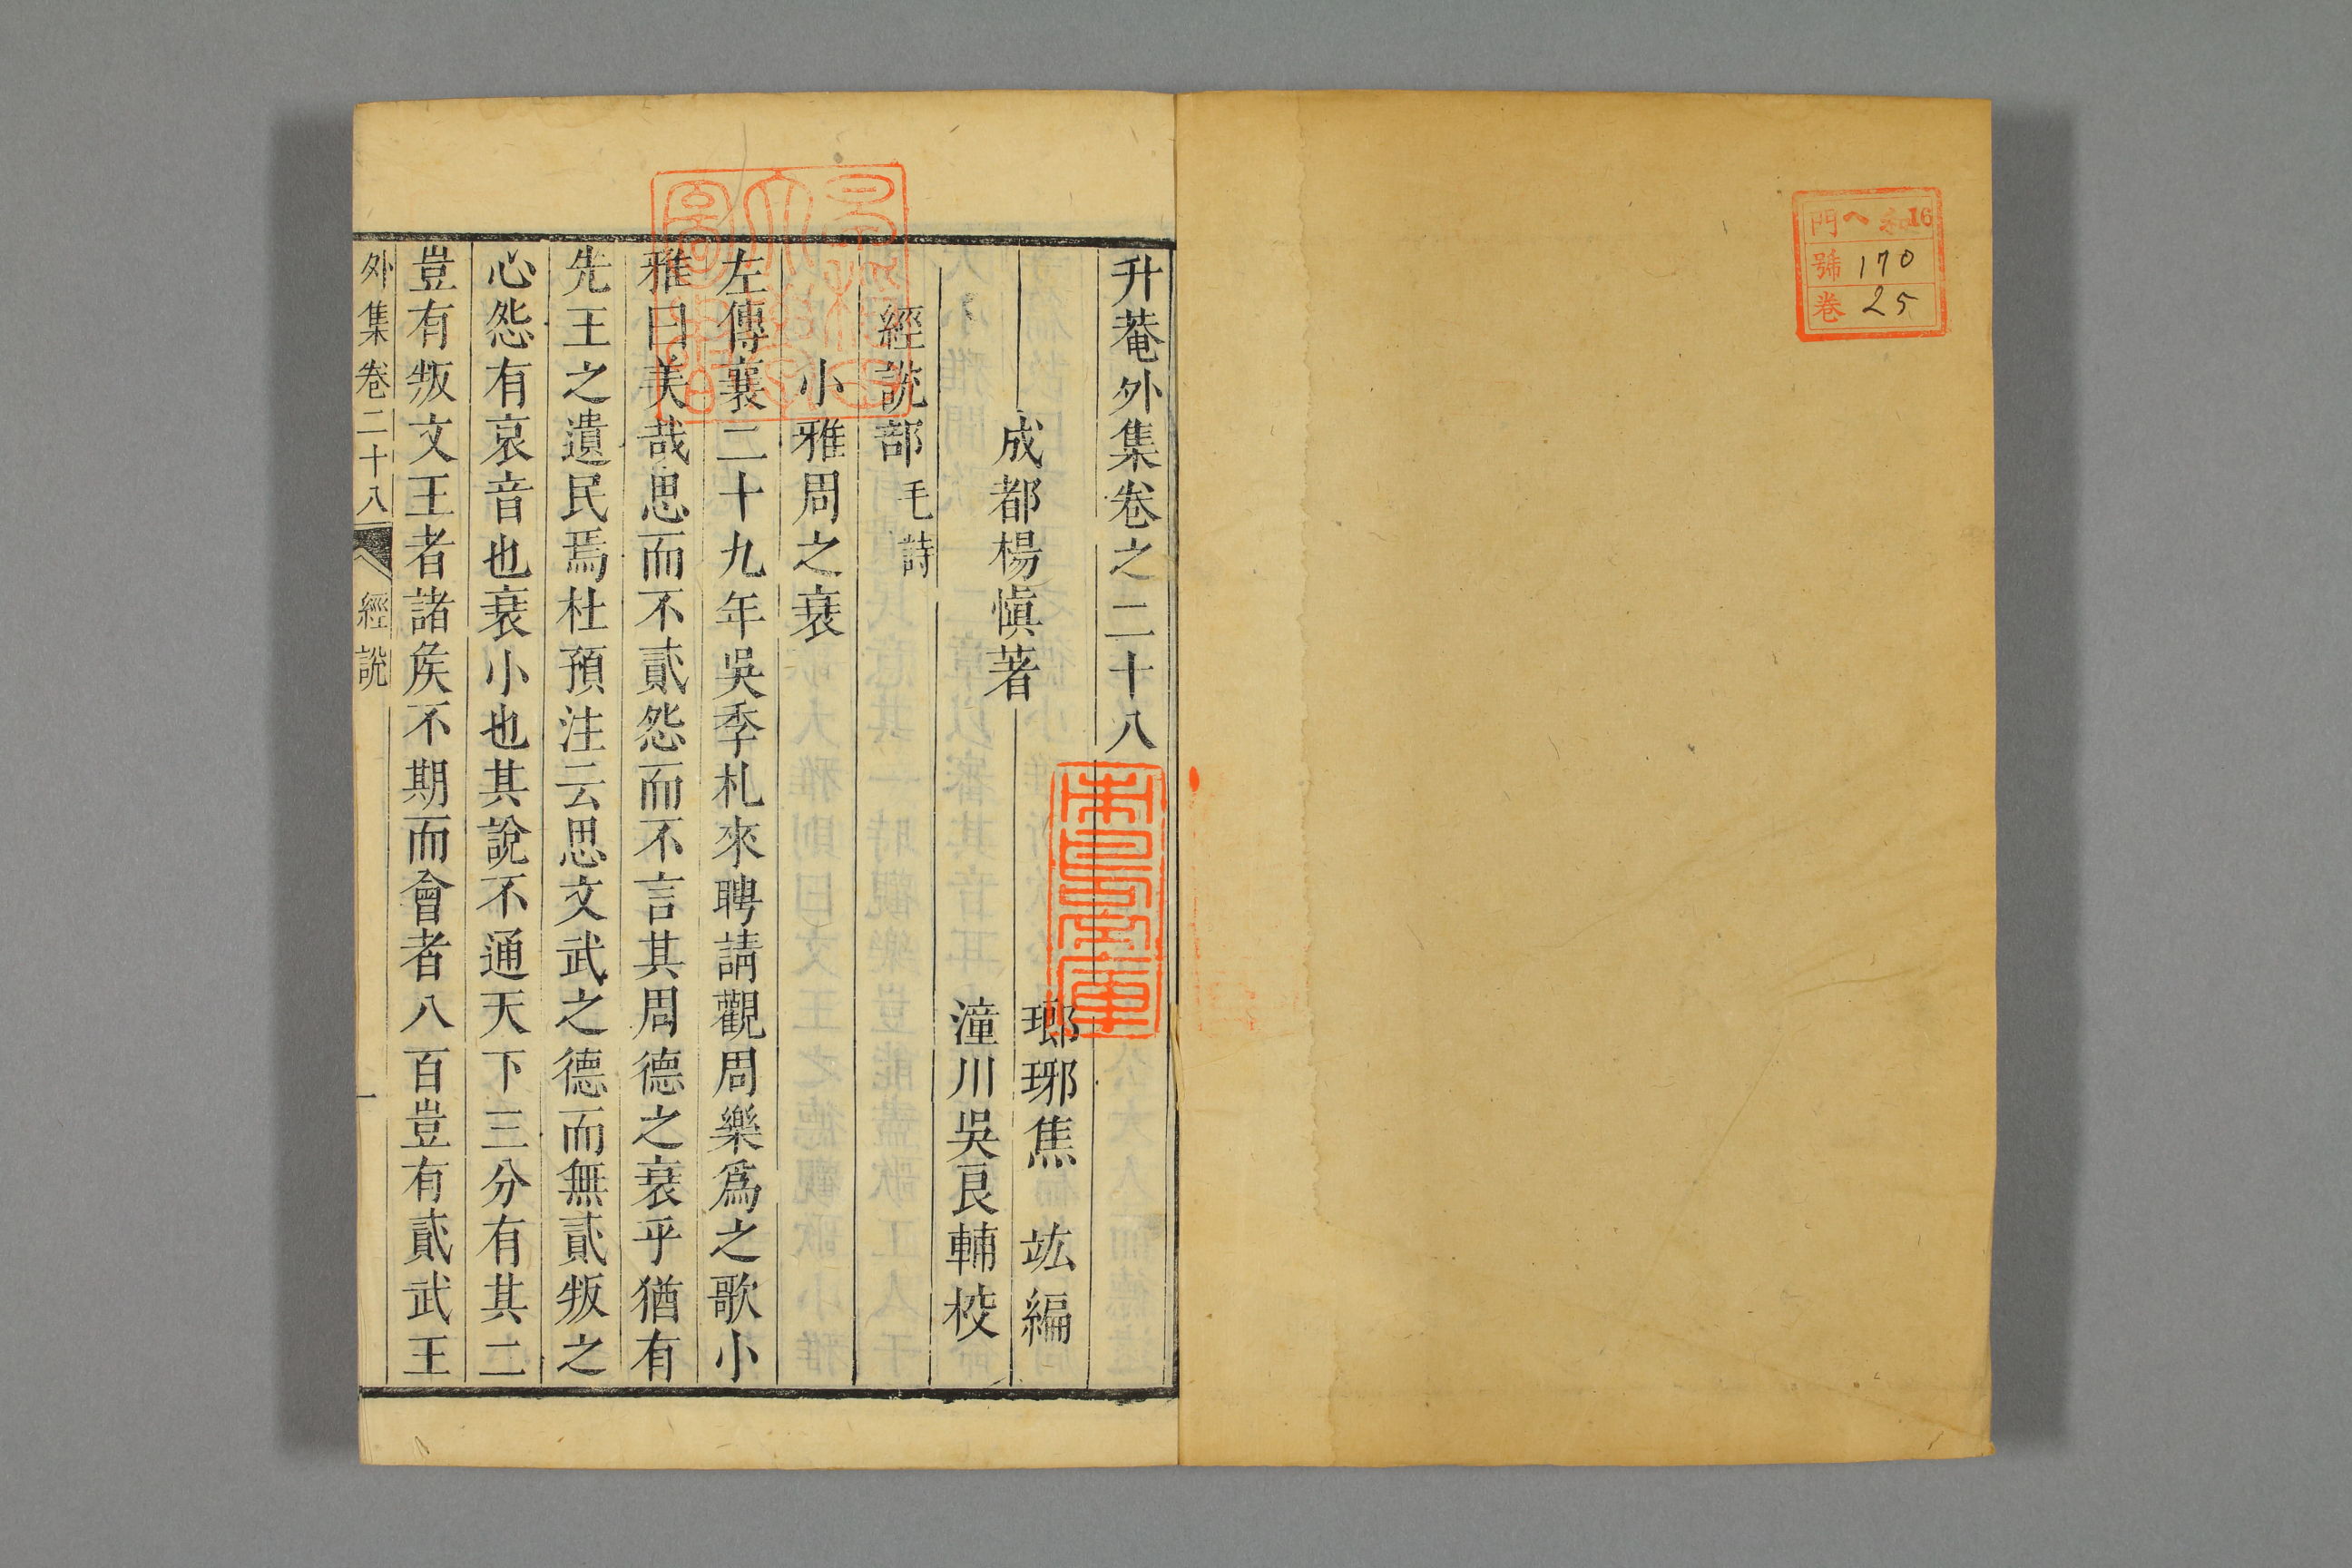 門 ヘ 16
號 170
卷 25
升菴外集卷之二十八
成都楊愼著
瑯琊焦竑編
潼川吳良輔校
經說部 毛詩
小雅周之衰
左傳襄二十九年吳季札來聘請觀周樂爲之歌小
雅曰美哉思而不貳怨而不言其周德之衰乎猶有
先王之遺民焉杜預注云思文武之德而無貳叛之
心怨有哀音也衰小也其說不通天下三分有其二
豈有叛文王者諸矦不期而會者八百豈有貳武王
外集卷二十八 經說 一